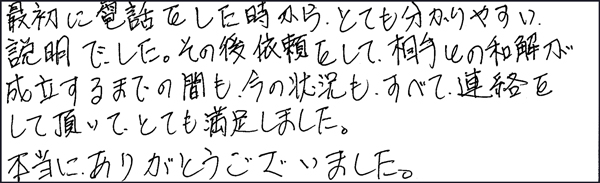 最初に電話をした時から、とても分かりやすい、
説明でした。その後依頼をして、相手との和解が
成立するまでの間も、今の状況も、すべて、連絡を
して頂いて、とても満足しました。
本当に、ありがとうございました。